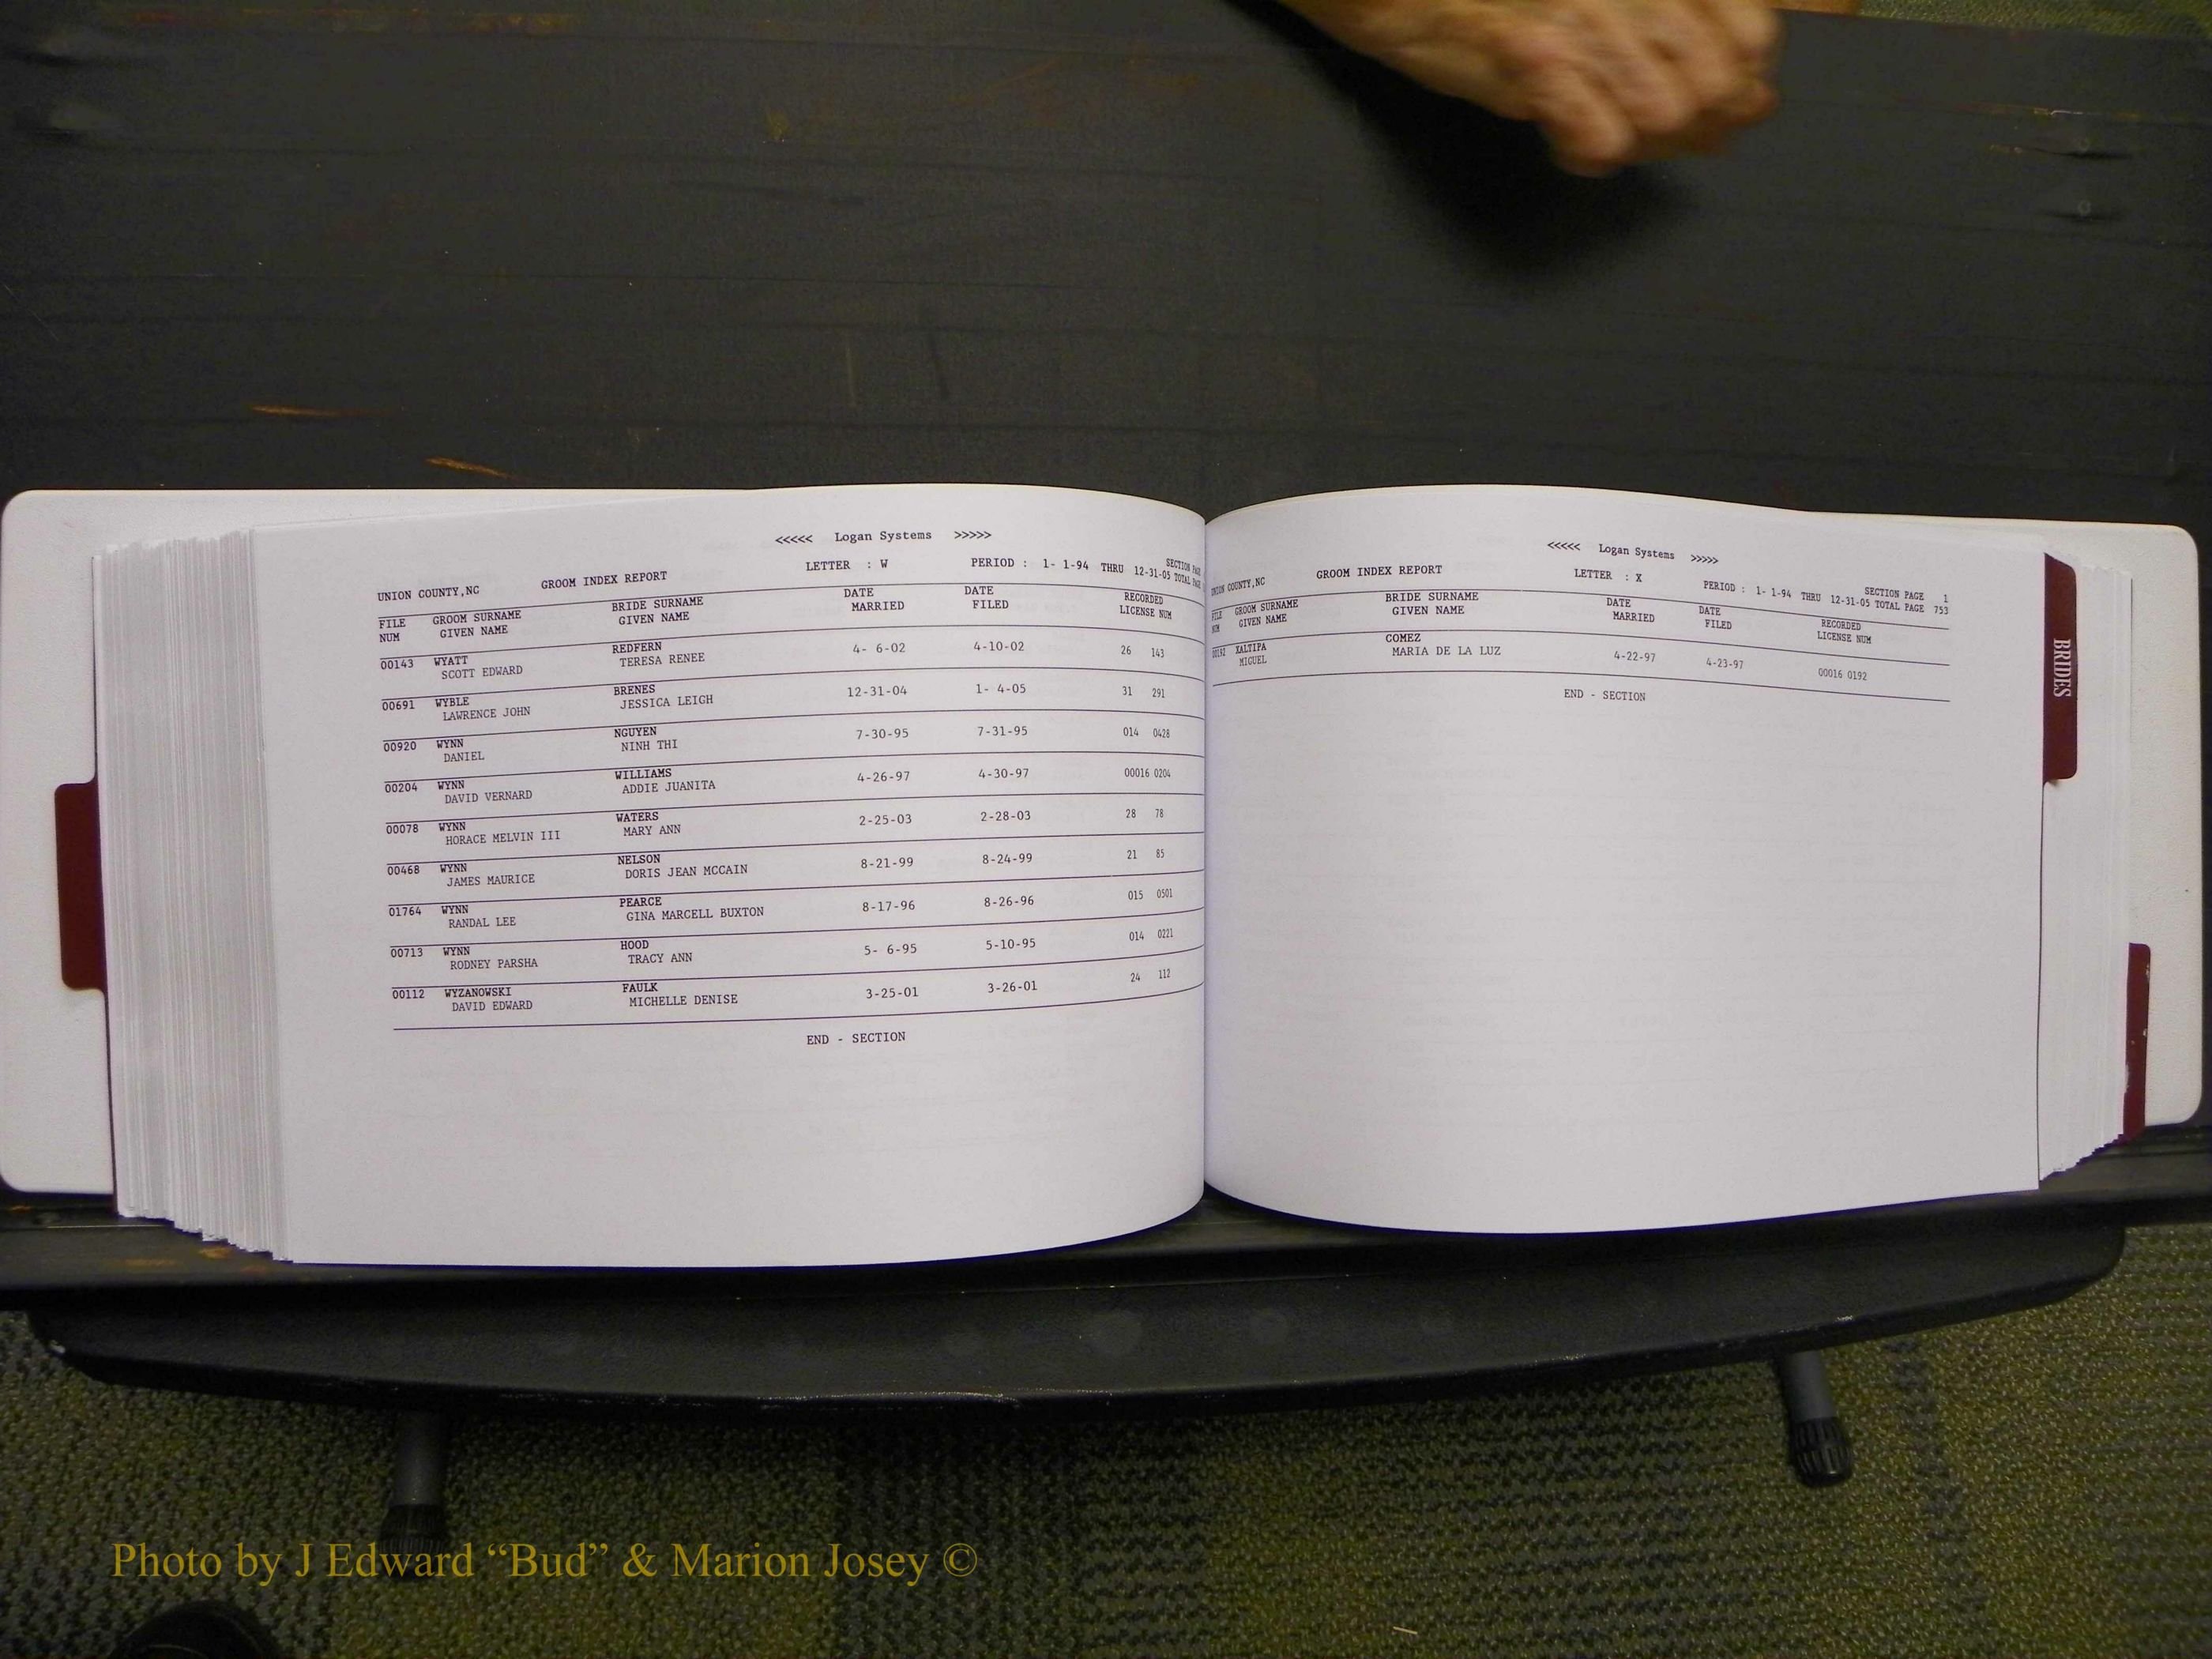 <<<<< Logan Systems >>>>>
UNION COUNTY,NC GROOM INDEX REPORT LETTER : W PERIOD : 1- 1-94 THRU 12-31-05 SECTION PAGE
TOTAL PAGE
FILE GROOM SURNAME BRIDE SURNAME DATE DATE RECORDED
NUM GIVEN NAME GIVEN NAME MARRIED FILED LICENSE NUM
00143 WYATT REDFERN 4- 6-02 4-10-02 26 143
SCOTT EDWARD TERESA RENEE
00691 WYBLE BRENES 12-31-04 1- 4-05 31 291
LAWRENCE JOHN JESSICA LEIGH
00920 WYNN NGUYEN 7-30-95 7-31-95 014 0428
DANIEL NINH THI
00204 WYNN WILLIAMS 4-26-97 4-30-97 00016 0204
DAVID VERNARD ADDIE JUANITA
00078 WYNN WATERS 2-25-03 2-28-03 28 78
HORACE MELVIN III MARY ANN
00468 WYNN NELSON 8-21-99 8-24-99 21 85
JAMES MAURICE DORIS JEAN MCCAIN
01764 WYNN PEARCE 8-17-96 8-26-96 015 0501
RANDAL LEE GINA MARCELL BUXTON
00713 WYNN HOOD 5- 6-95 5-10-95 014 0221
RODNEY PARSHA TRACY ANN
00112 WYZANOWSKI FAULK 3-25-01 3-26-01 24 112
DAVID EDWARD MICHELLE DENISE
END - SECTION
<<<<< Logan Systems >>>>>
UNION COUNTY,NC GROOM INDEX REPORT LETTER : X PERIOD : 1- 1-94 THRU 12-31-05 SECTION PAGE 1
TOTAL PAGE 753
FILE GROOM SURNAME BRIDE SURNAME DATE DATE RECORDED
NUM GIVEN NAME GIVEN NAME MARRIED FILED LICENSE NUM
00192 XALTIPA COMEZ 4-22-97 4-23-97 00016 0192
MIGUEL MARIA DE LA LUZ
END - SECTION
BRIDES
Photo by J Edward “Bud” & Marion Josey ©